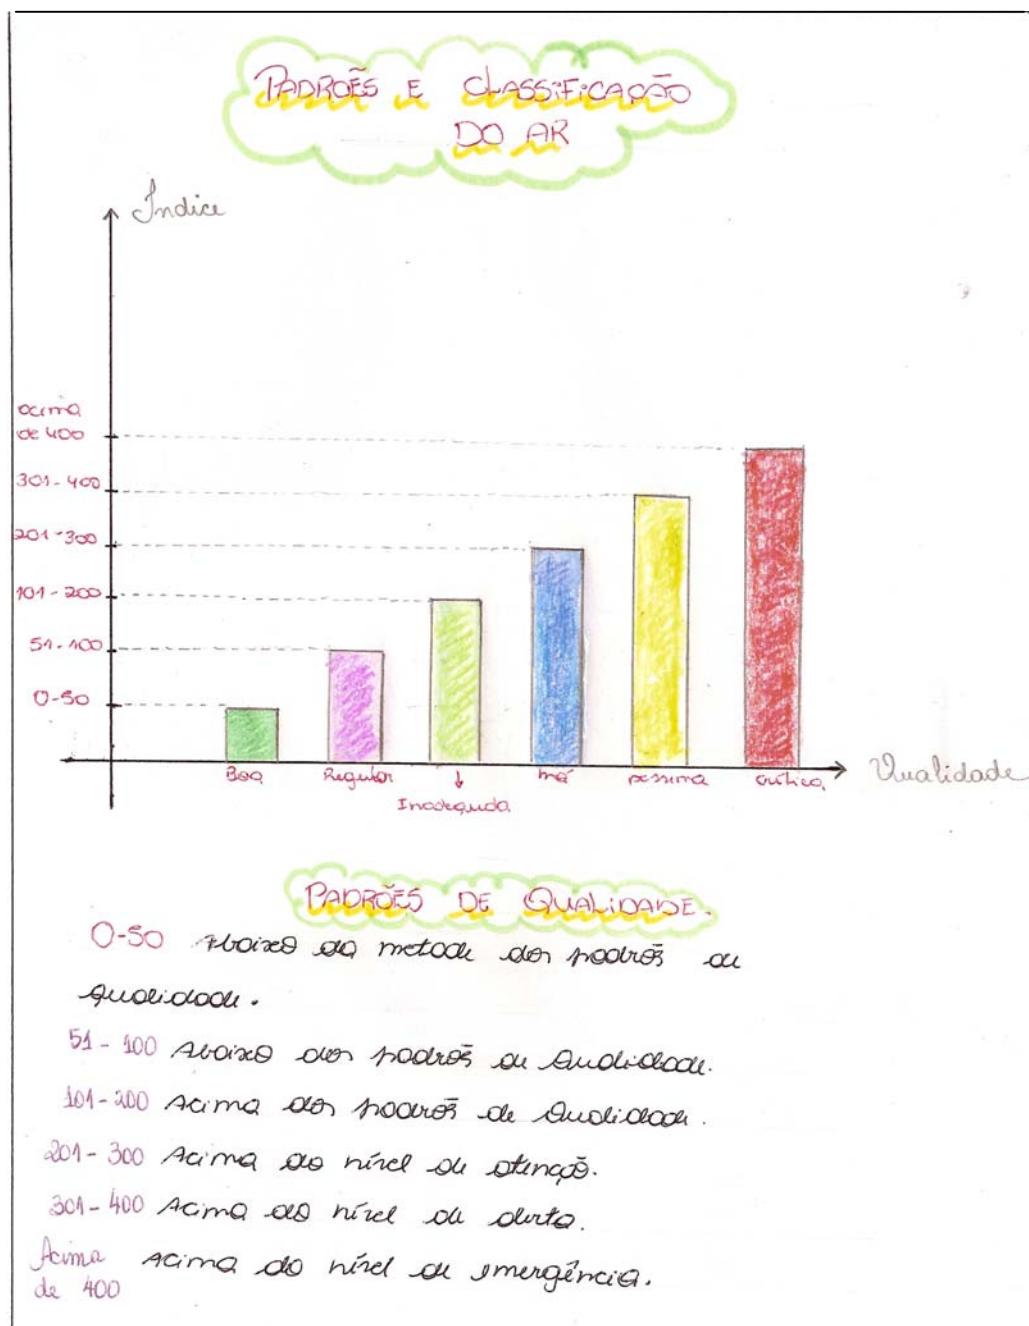 PADROẼS E CLASSIFICAÇÃO
DO AR
Índice
acima
de 400
301-400
201-300
101-200
51-100
0-50
Boa Regular ↓ má pessima crítica
Inadequada
Qualidade
PADRÕES DE QUALIDADE.
0-50 Abaixo da metade dos padrõs de
qualidade.
51-100 Abaixo dos padrõs de Qualidade.
101-200 Acima dos padrõs de Qualidade.
201-300 Acima do nível de atenção.
301-400 Acima do nível de alerta.
Acima
de 400 Acima do nível de emergência.